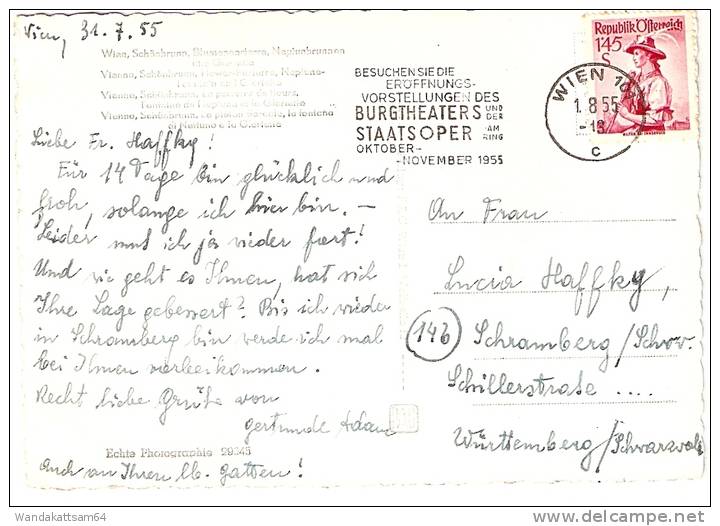 Wien, 31.7.55
Wien, Schönbrunn, Blumenparterre, Neptunbrunnen
und Gloriette
Vienna, Schönbrunn,
Vienne, Schönbrunn, Le parterre de fleurs,
Fontaine de Neptune et la Gloriette
Vienna, Schönbrunn, la fontana
di Nettuno e la Gloriette
BESUCHEN SIE DIE
ERÖFFNUNGS-
VORSTELLUNGEN DES
BURGTHEATERS UND DER
STAATSOPER AM RING
OKTOBER-
-NOVEMBER 1955
Republik Österreich
1'45
S
WIEN 10
1.8.55
-18
c
Liebe Fr. Haffky!
Für 14 Tage bin glücklich und
froh, solange ich hier bin. –
Leider muß ich ja wieder fort!
Und wie geht es Ihnen, hat sich
Ihre Lage gebessert? Bis ich wieder
in Schramberg bin werde ich mal
bei Ihnen vorbeikommen.
Recht liebe Grüße von
Gertrude Adam
Echte Photographie 29245
Auch an Ihren lb. Gatten!
An Frau
Lucia Haffky,
(14b) Schramberg/Schw.
Schillerstraße ....
Württemberg/Schwarzwald
Wandakattsam64
http://www.delcampe.net